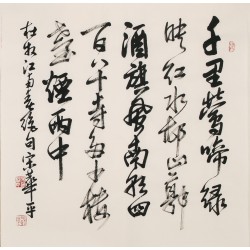 千里鶯啼緑
映红水邨山郭
酒旗風南朝四
百八十寺多少楼
臺煙雨中
杜牧江南春绝句 宋華平